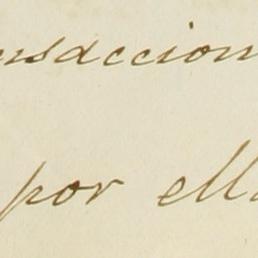 nsaccion
por ella